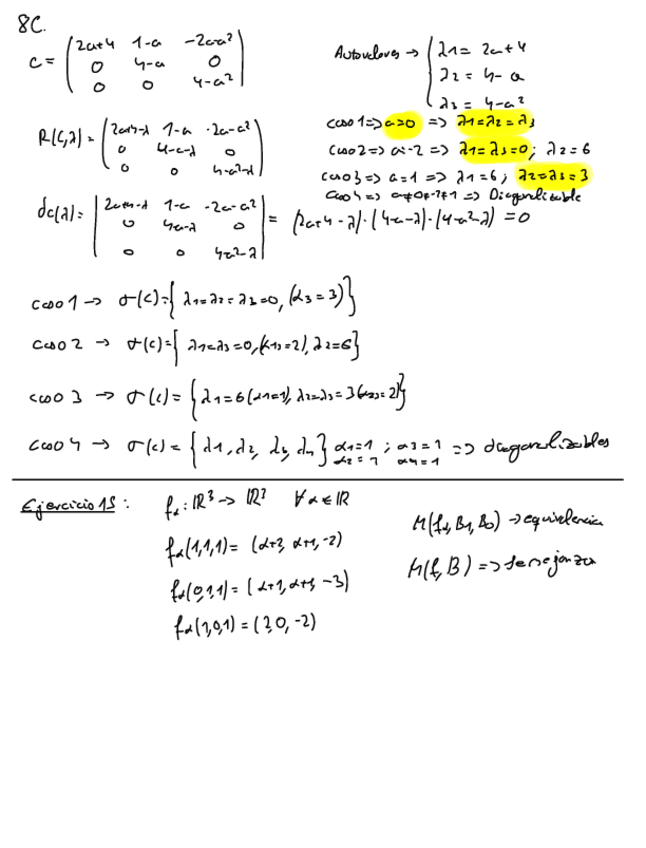 8C.
C = ( 2a+4 1-a -2a-a²
0 4-a 0
0 0 4-a² )
Autovalores → { λ1 = 2a+4
λ2 = 4-a
λ3 = 4-a²
caso 1 => a=0 => λ1=λ2=λ3
caso 2 => a=-2 => λ1=λ3=0; λ2=6
caso 3 => a=1 => λ1=6; λ2=λ3=3
caso 4 => a≠0≠-2≠1 => Diagonalizable
R(C,λ) = ( 2a+4-λ 1-a -2a-a²
0 4-a-λ 0
0 0 4-a²-λ )
dc(λ) = | 2a+4-λ 1-a -2a-a²
0 4-a-λ 0
0 0 4-a²-λ | = (2a+4-λ)·(4-a-λ)·(4-a²-λ) = 0
caso 1 → σ(c) = { λ1=λ2=λ3=0, (α3=3) }
caso 2 → σ(c) = { λ1=λ3=0, (α13=2), λ2=6 }
caso 3 → σ(c) = { λ1=6 (α1=1), λ2=λ3=3 (α23=2) }
caso 4 → σ(c) = { λ1, λ2, λ3, λ4 } α1=1 ; α3=1 => diagonalizables
α2=1 α4=1
Ejercicio 15:
fα: ℝ³ → ℝ³ ∀α∈ℝ
fα(1,1,1) = (α+3, α+1, -2)
fα(0,1,1) = (α+1, α+1, -3)
fα(1,0,1) = (2,0,-2)
M(fα, B1, B2) → equivalencia
M(f, B) => semejanza